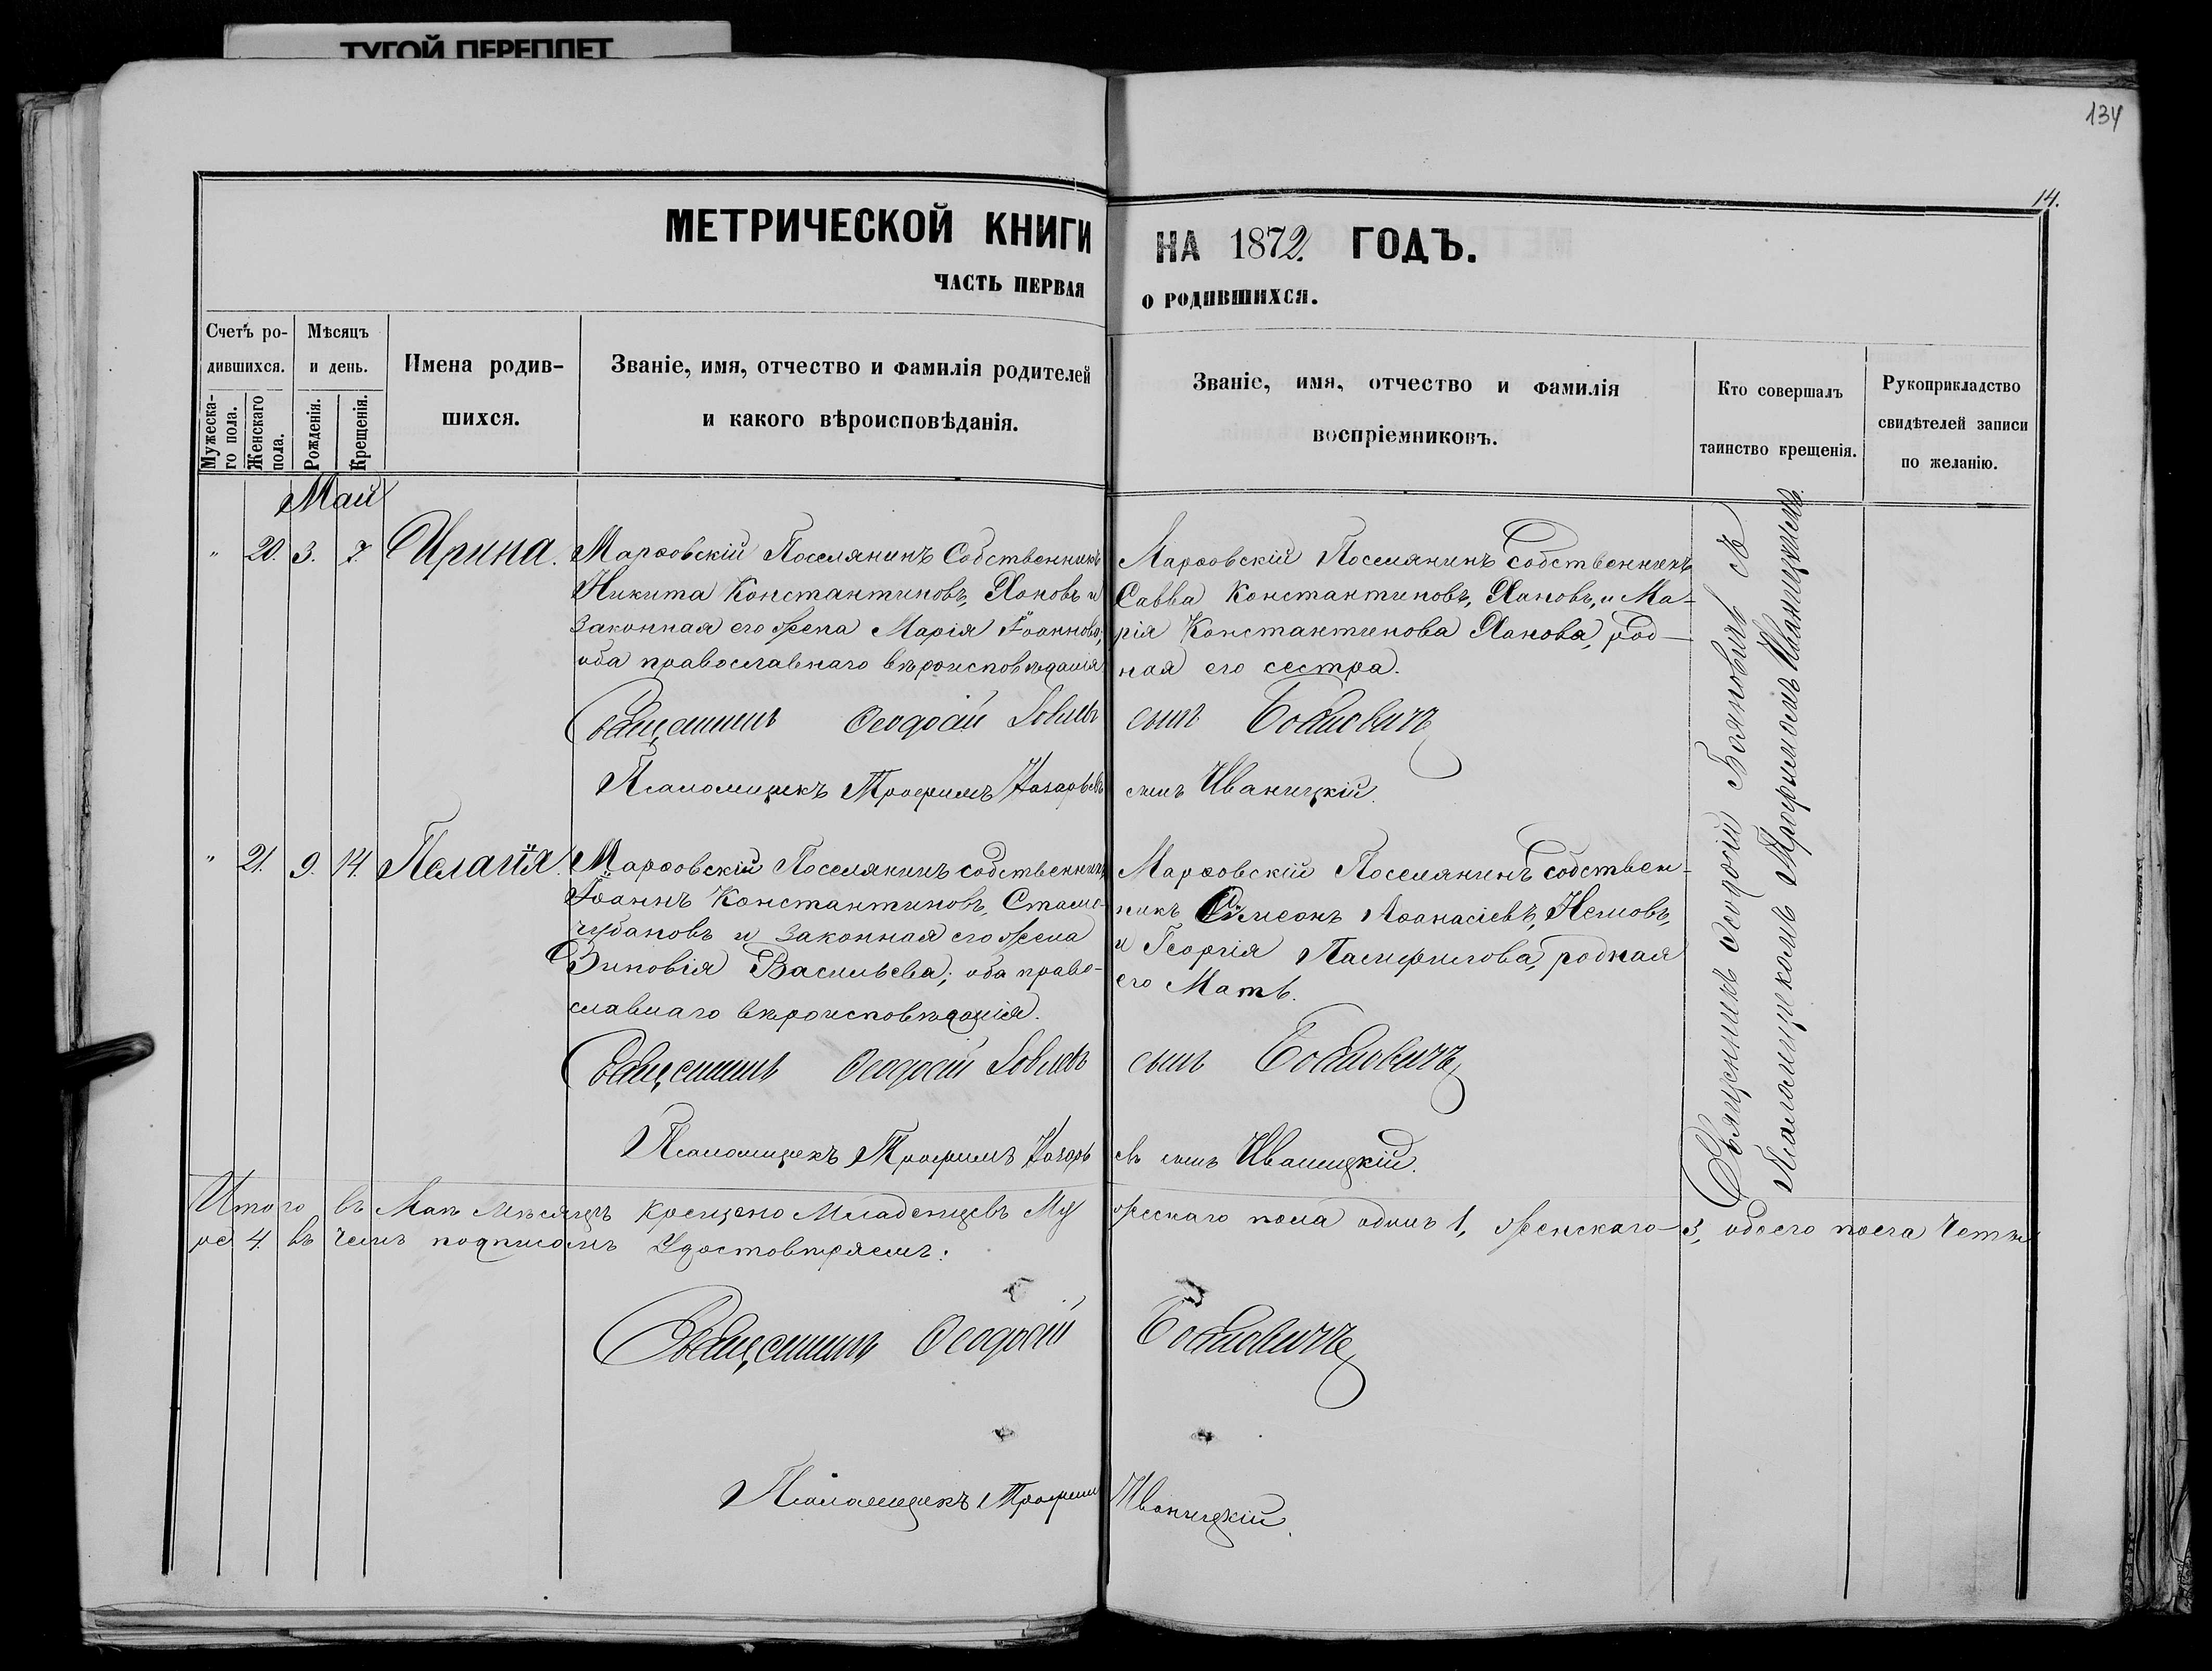 ТУГОЙ ПЕРЕПЛЕТ
134
14.
МЕТРИЧЕСКОЙ КНИГИ НА 1872. ГОДЪ.
ЧАСТЬ ПЕРВАЯ О РОДИВШИХСЯ.
Счетъ ро-
дившихся.
Мужеска-
го пола.
Женскаго
пола.
Мѣсяцъ
и день.
Рожденія.
Крещенія.
Имена родив-
шихся.
Званіе, имя, отчество и фамилія родителей
и какого вѣроисповѣданія.
Званіе, имя, отчество и фамилія
воспріемниковъ.
Кто совершалъ
таинство крещенія.
Рукоприкладство
свидѣтелей записи
по желанію.
Май
" 20. 3. 7. Ирина.
Марѳовскій Поселянинъ Собственникъ
Никита Константиновъ, Хановъ и
Законная его жена Марія Іоаннова,
оба православнаго вѣроисповѣданія
Марѳовскій Поселянинъ Собственникъ
Савва Константиновъ, Хановъ, и Ма-
рія Константинова Ханова, род-
ная его сестра.
Священникъ Ѳеодосій Іовлевъ сынъ Бояновичъ
Псаломщикъ Трофимъ Назарьевъ сынъ Иваницкій.
" 21. 9. 14. Пелагія.
Марѳовскій Поселянинъ собственникъ
Іоаннъ Константиновъ, Стамо-
чубановъ и Законная его жена
Зиновія Васильева; оба право-
славнаго вѣроисповѣданія.
Марѳовскій Поселянинъ Собствен-
никъ Симеонъ Аѳанасіевъ, Немовъ,
и Георгія родная
его Мать.
Священникъ Ѳеодосій Іовлевъ сынъ Бояновичъ
Псаломщикъ Трофимъ Назарьевъ сынъ Иваницкій.
Священникъ Ѳеодосій Бояновичъ съ
Псаломщикомъ Трофимомъ Иваницкимъ.
Итого въ Маѣ Мѣсяцѣ крещено Младенцевъ Мужескаго пола одинъ 1, женскаго 3, обоего пола Четы
ре 4. въ чемъ подписомъ Удостовѣряемъ:
Священникъ Ѳеодосій Бояновичъ
Псаломщикъ Трофимъ Иваницкій.